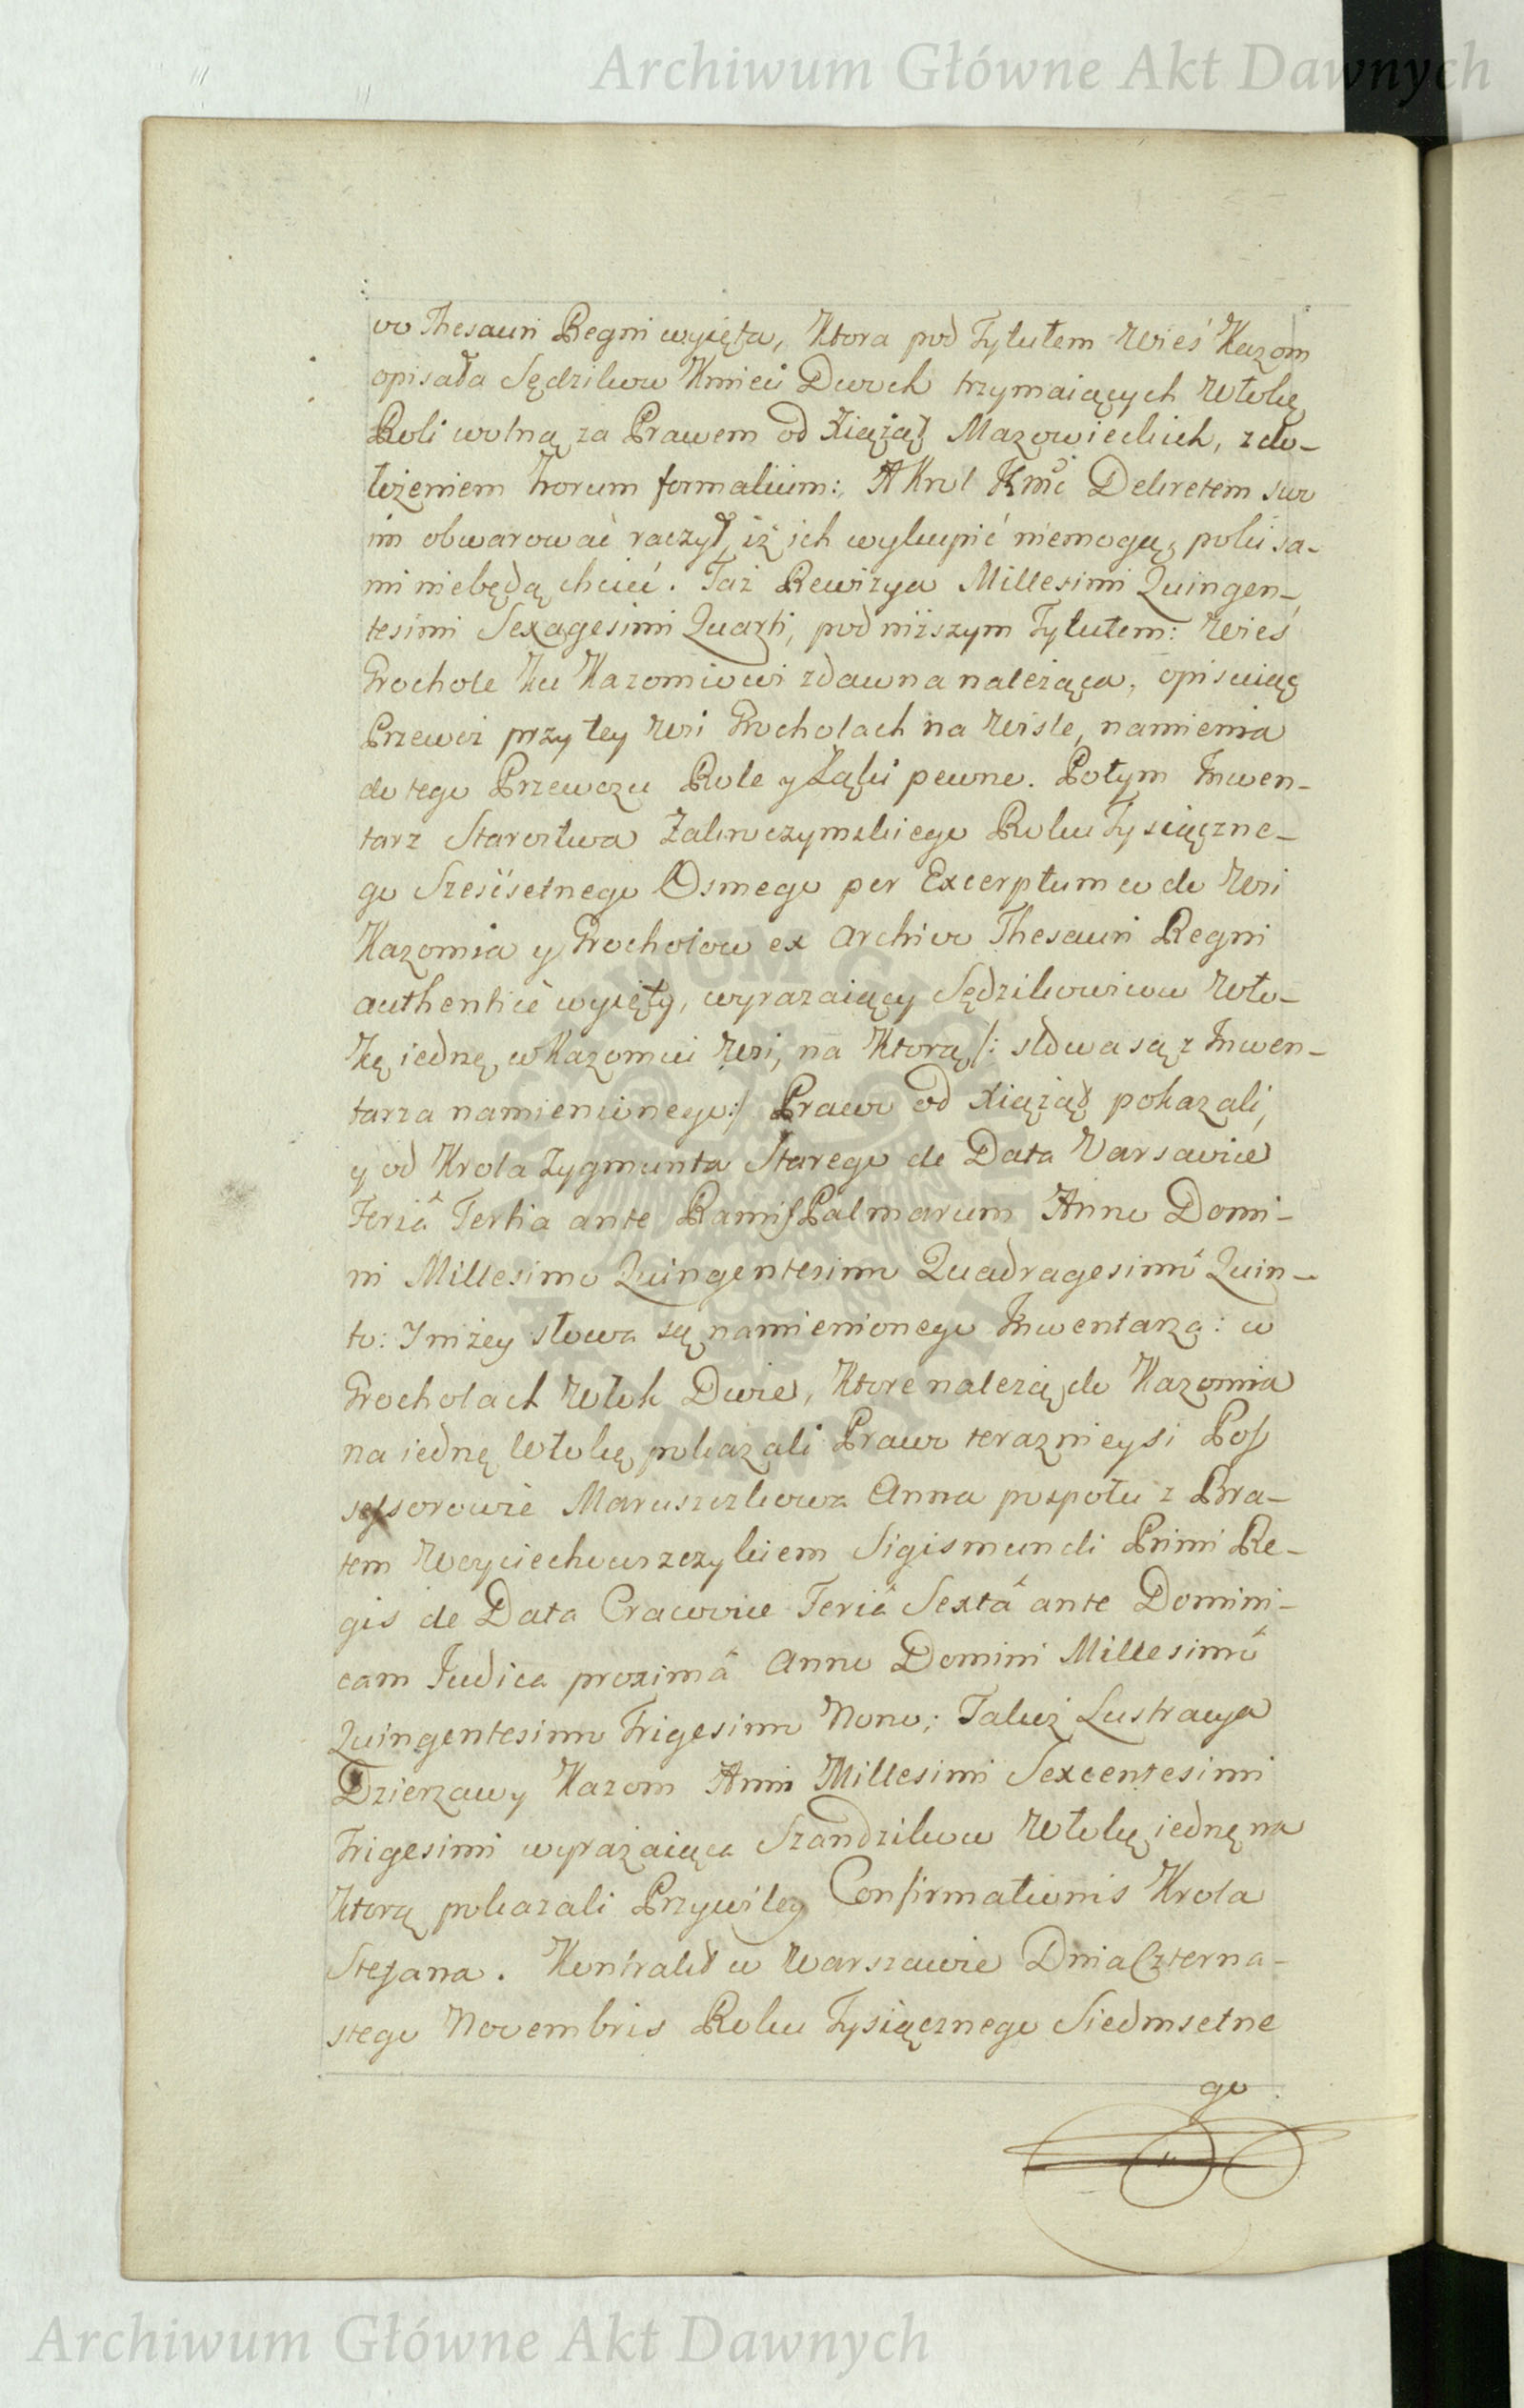 Archiwum Główne Akt Dawnych
vo Thesauri Regni wyięta, Ktora pod Tytułem Wieś Kazom
opisała Sędzikow Kmieci Dwoch trzymaiących Włokę
Roli wolną za Prawem od Xiążąt Mazowieckich, z do-
łożeniem horum formalium: A Krol Jmć Dekretem swo
im obwarować raczył, iż ich wykupić niemogą, poki sa-
mi niebędą chcieć. Taż Rewizya Millesimi Quingen-
tesimi Sexagesimi Quarti, pod niższym Tytułem: Wieś
Grochole Ku Kazomiowi zdawna należąca, opisuiąc
Przewoz przy tey Wsi Grocholach na Wisle, namienia
do tego Przewozu Role y Łąki pewne. Potym Inwen-
tarz Starostwa Zakroczymskiego Roku Tysiączne-
go Sześćsetnego Osmego per Excerptum co do Wsi
Kazomia y Grocholow ex Archivo Thesauri Regni
authenticè wyięty, wyrazaiący Sędzikowiow Wło-
kę iednę w Kazomiu Wsi, na Ktorą /: słowa są z Inwen-
tarza namienionego :/ Prawo od Xiążąt pokazali,
y od Krola Zygmunta Starego de Data Varsaviæ
Feriâ Tertia ante Ramis Palmarum Anno Domi-
ni Millesimo Quingentesimo Quadragesimô Quin-
to: J niżey słowa są namienionego Inwentarza: w
Grocholach Włok Dwie, Ktore należą do Kazomia
na iednę Włokę pokazali Prawo teraznieysi Pos
sessorowie Maruszczkowa Anna pospołu z Bra-
tem Woyciechowszczykiem Sigismundi Primi Re-
gis de Data Cracoviæ Feriâ Sextâ ante Domini-
cam Judica proximâ Anno Domini Millesimô
Quingentesimo Trigesimo Nono; Takoż Lustracya
Dzierzawy Kazom Anni Millesimi Sexcentesimi
Trigesimi wyrażaiąca Szandzikow Włokę iednę na
Ktorą pokazali Przywiley Confirmationis Krola
Stefana. Kontrakt w Warszawie Dnia Czterna-
stego Novembris Roku Tysiącznego Siedmsetne
go
Archiwum Główne Akt Dawnych